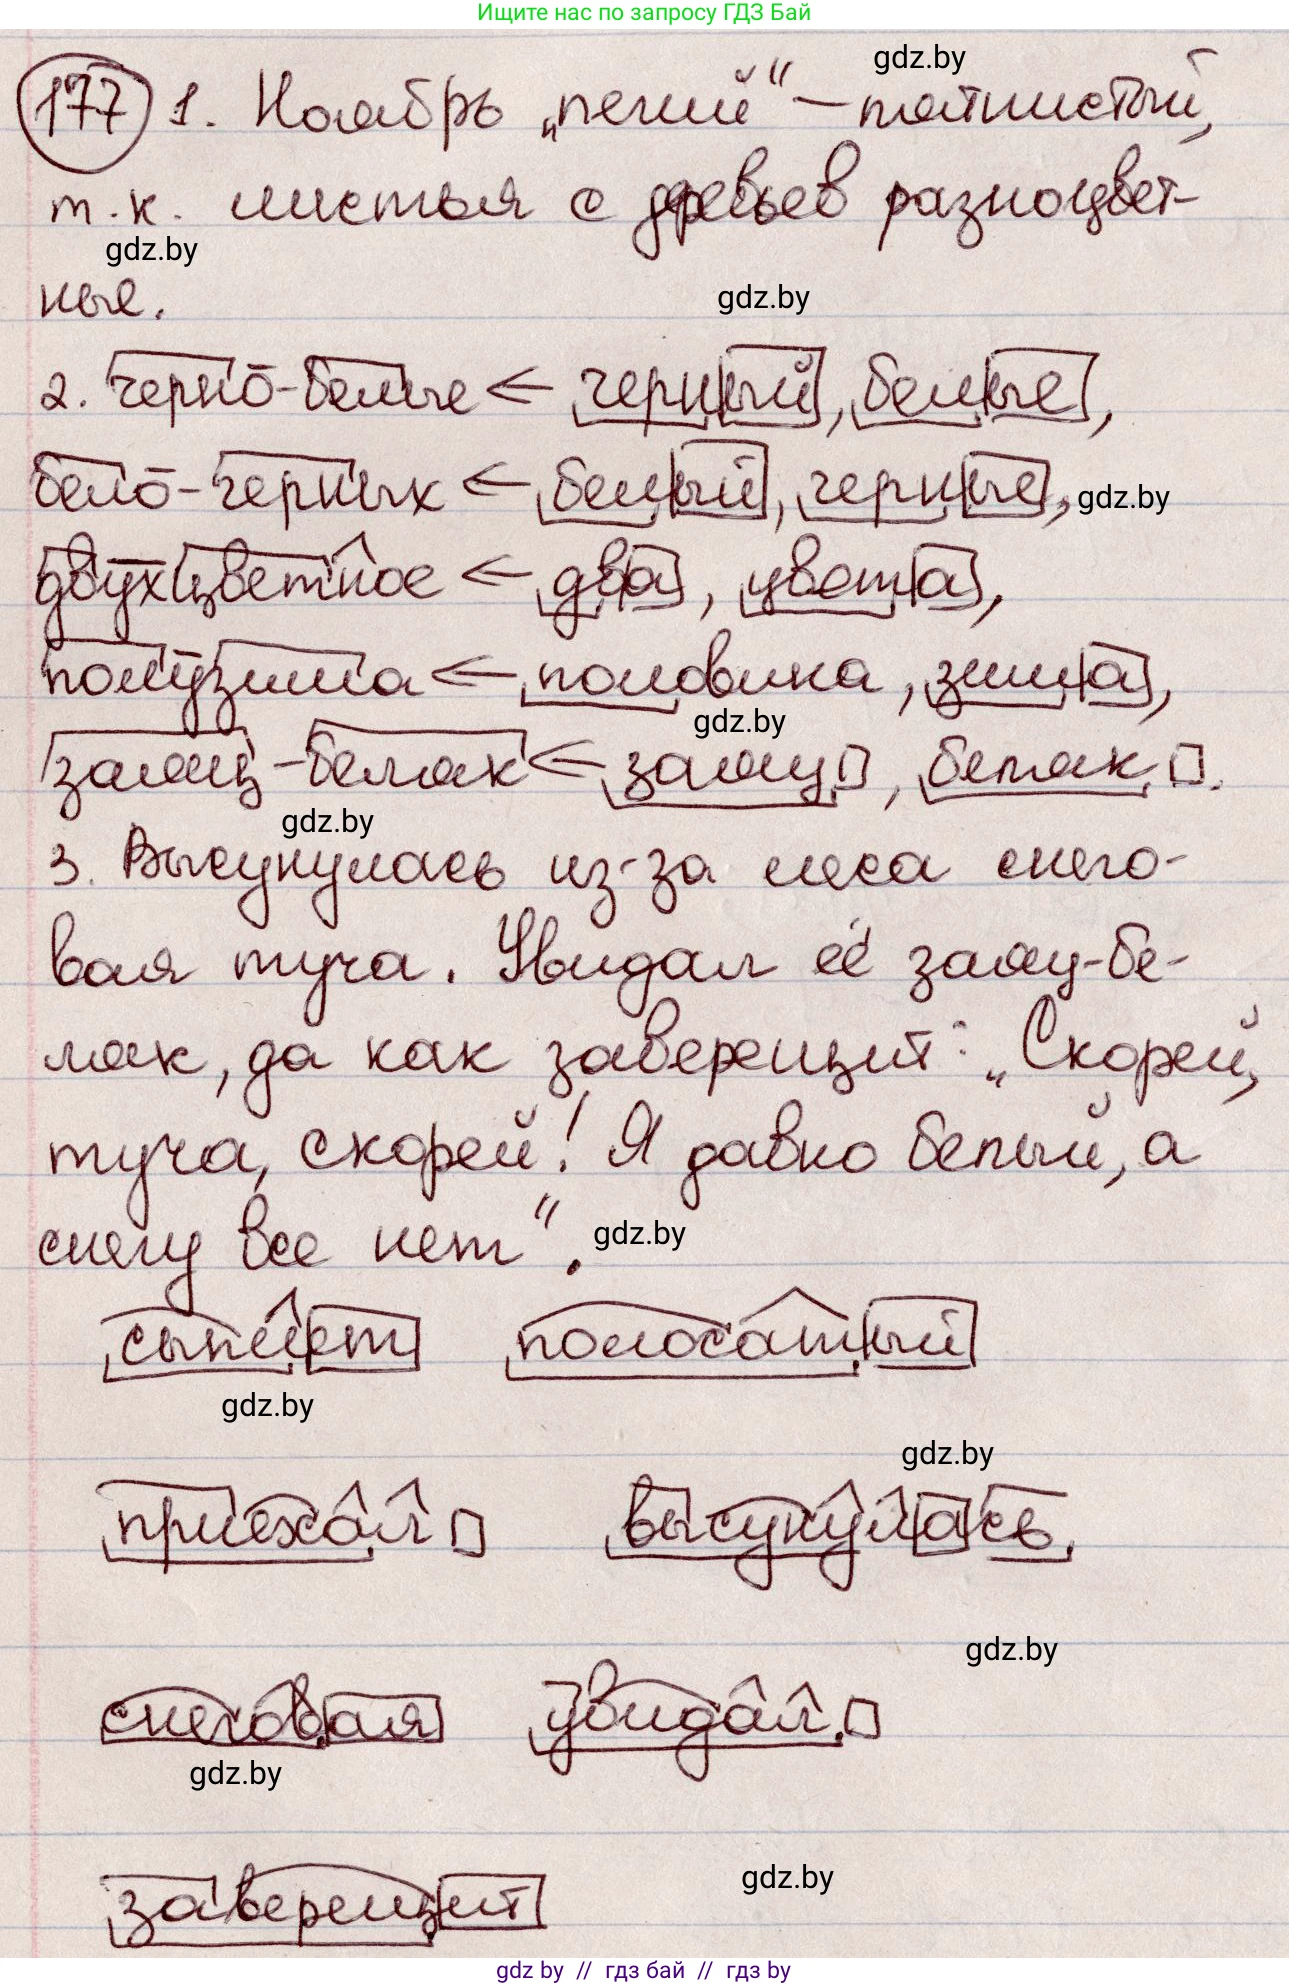 Ищите нас по запросу ГДЗ Бай
gdz.by
177 1. Ноябрь „пегий“ – пятнистый,
т.к. листья с деревьев разноцвет-
gdz.by
ные.
gdz.by
2. черно-белые ← черный, белые,
бело-черных ← белый, черные,
gdz.by
двухцветное ← два, цвета,
полузима ← половина, зима,
gdz.by
заяц-беляк ← заяц, беляк.
gdz.by
3. Высунулась из-за леса снего-
вая туча. Увидал её заяц-бе-
ляк, да как заверещит: „Скорей,
туча, скорей! Я давно белый, а
снегу все нет“.
gdz.by
сыплет полосатый
gdz.by
gdz.by
приехал высунулась
gdz.by
снеговая увидал
gdz.by
gdz.by
заверещит
gdz by // гдз бай // гдз by